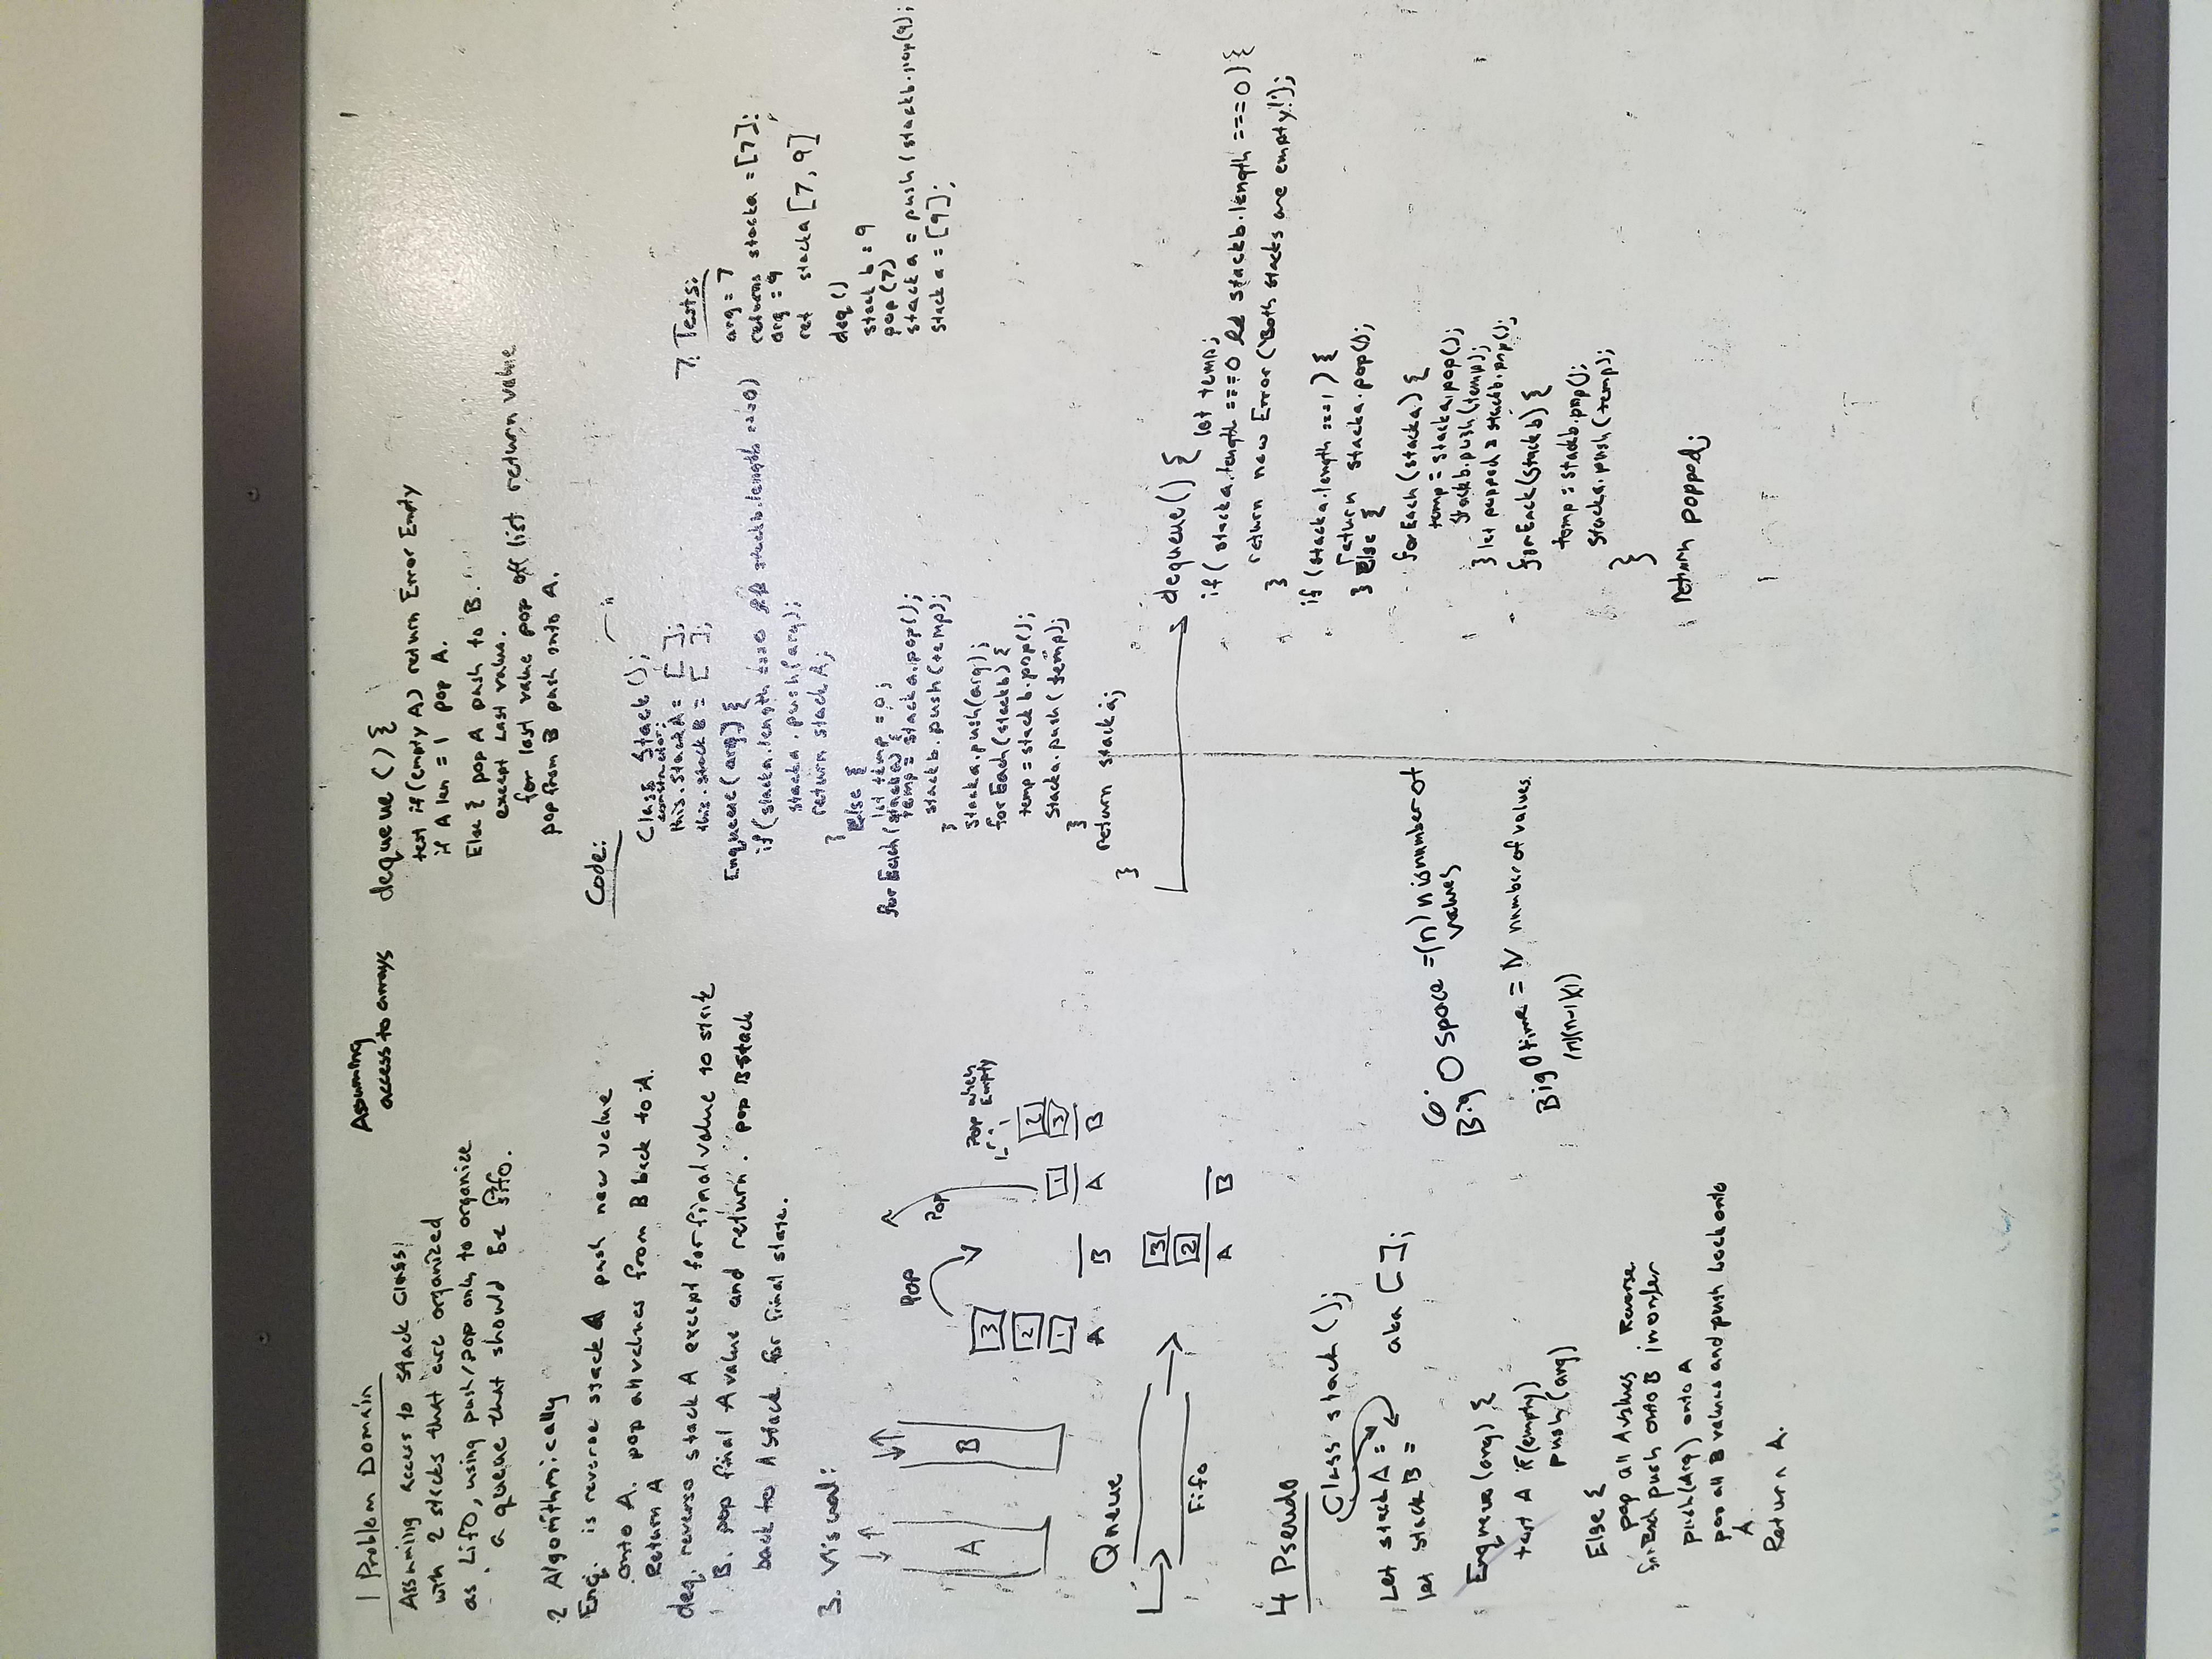 1 Problem Domain
Assuming access to stack class,
with 2 stacks that are organized
as LifO, using push/pop only to organize
a queue that should be fifo.
Assuming
access to arrays
2 Algorithmically
Enq. is reverse stack A push new value
onto A. pop all values from B back to A.
Return A
deq. reverse stack A except for final value to stack
B. pop final A value and return. pop B stack
back to A stack for final state.
3. Visual:
A
B
3
2
1
A
Pop
B
Pop
1
A
Pop when
Empty
2
3
B
Queue
Fifo
3
2
A
B
4 Pseudo
Class stack();
Let stack A =
let stack B =
aka [ ];
Enqueue (arg) {
test A if (empty)
push (arg)
Else {
pop all A values Reverse
for Each push onto B in order
push(Arg) onto A
pop all B values and push back onto
A.
Return A.
6.
Big O space = (n) n is number of
values
Big O time = N number of values.
(n)(n-1)(1)
dequeue () {
test if (empty A) return Error Empty
if A len = 1 pop A.
Else { pop A push to B.
except Last value.
for last value pop off list return value
pop from B push onto A.
Code:
Class Stack();
constructor;
this.stack A = [ ];
this.stack B = [ ];
Enqueue (arg) {
if (stacka.length ===0 && stackb.length ===0)
stacka.push(arg);
return stack A;
}
Else {
let temp = 0;
for Each (stacka) {
temp = stacka.pop();
stackb.push(temp);
}
stacka.push(arg);
forEach(stackb) {
temp = stackb.pop();
stacka.push(temp);
}
return stacka;
}
dequeue() {
let temp;
if (stacka.length ===0 && stackb.length ===0) {
return new Error ('Both stacks are empty!');
}
if (stacka.length ===1) {
return stacka.pop();
} Else {
forEach (stacka) {
temp = stacka.pop();
stackb.push(temp);
} let popped = stackb.pop();
forEach(stackb) {
temp = stackb.pop();
stacka.push(temp);
}
}
return popped;
7. Tests:
arg = 7
returns stacka = [7];
arg = 9
ret stacka [7, 9]
deq ()
stack b = 9
pop (7)
stack a = push (stackb.pop(9);
stack a = [9];